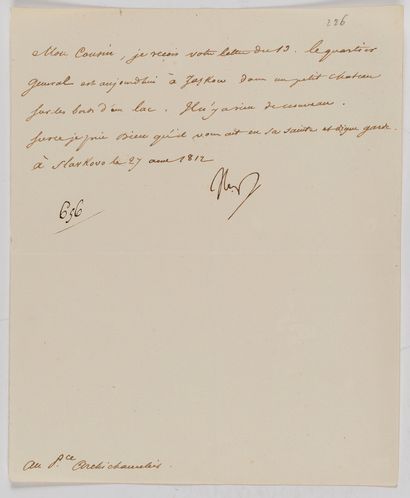 286
Mon Cousin, je reçois votre lettre du 13. le quartier
General est aujourdhui à Jaskow dans un petit chateau
sur les bords d'un lac. Il n'y a rien de nouveau.
Sur ce je prie Dieu qu'il vous ait en sa sainte et digne garde.
à Slavkovo le 27 aout 1812
Np
656
au P.ce Archichancelier.